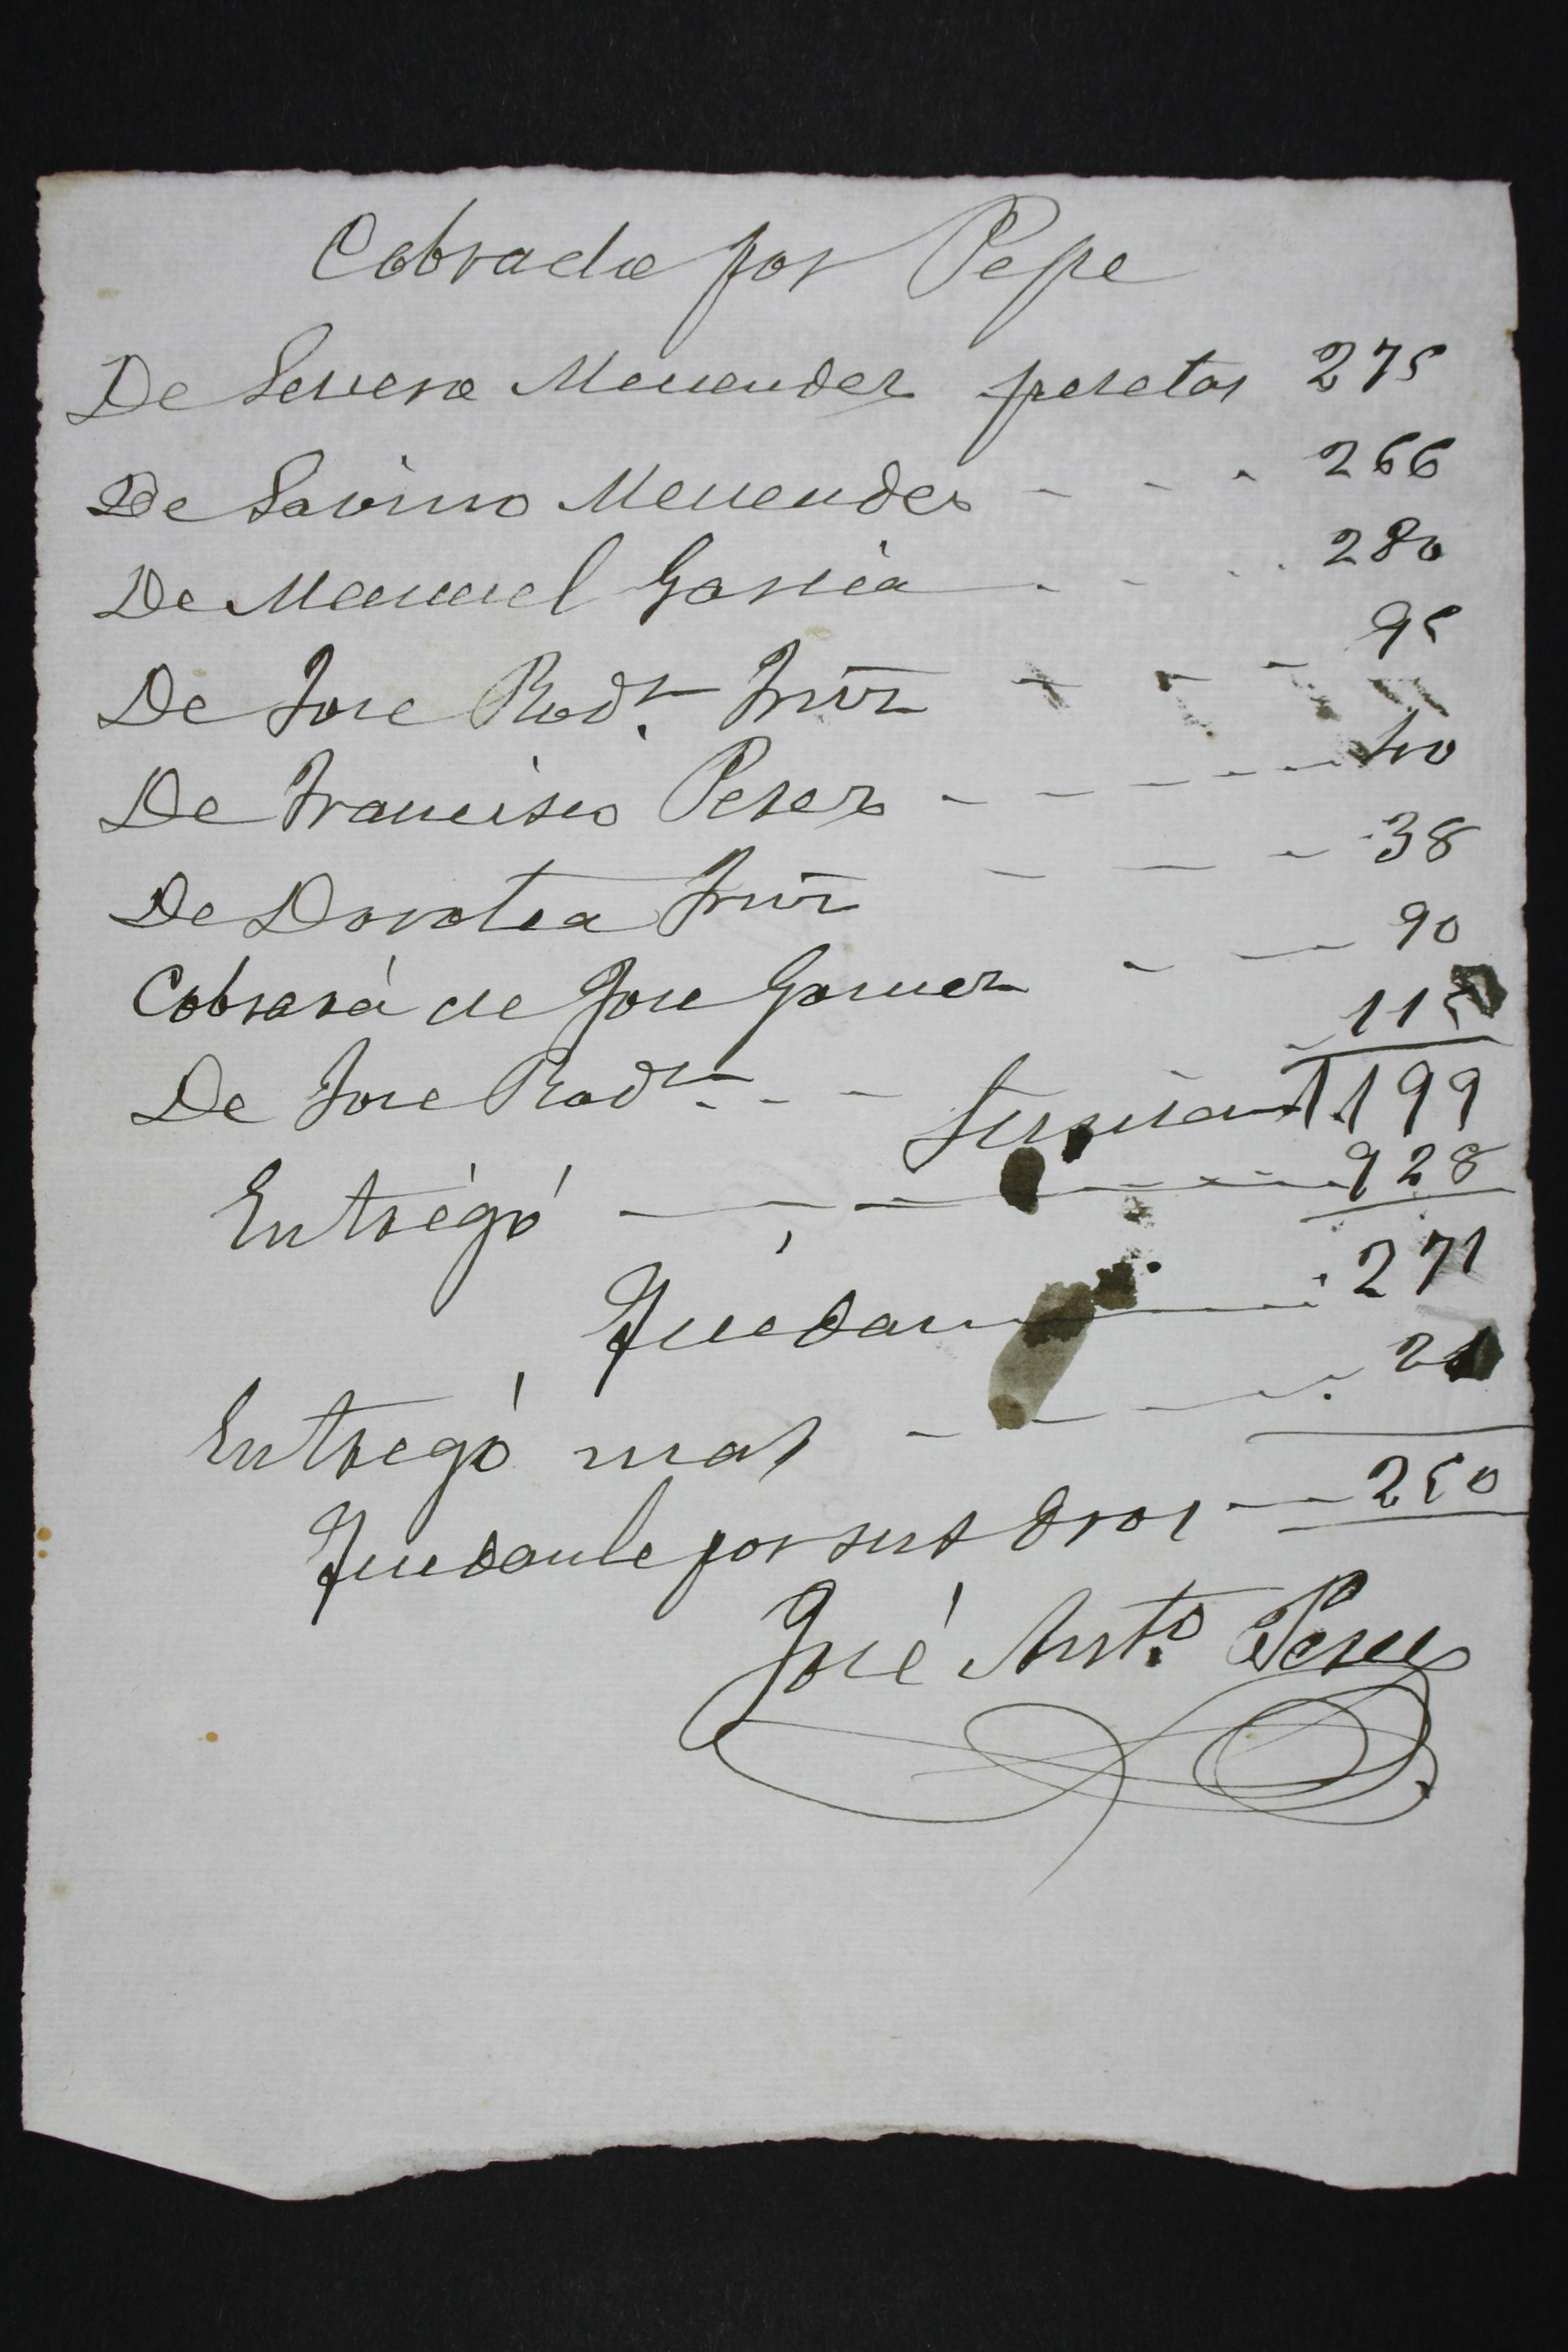 Cobrado por Pepe
De Severo Menendez pesetas 275
De Savino Menendez - - - 266
De Manuel Garcia - - - 280
De Jose Rodr. - - - 95
De Francisco Perez - - - - - 40
De Dorotea - - - 38
Cobrará de Jose Gomez - - 90
De Jose Rodr. - - - 115
Suman 1.199
Entrégó - - - - 928
Quedan - 271
Entregó mas - - - 21
Quedanle por sus dros - - 250
José Antº. Perez